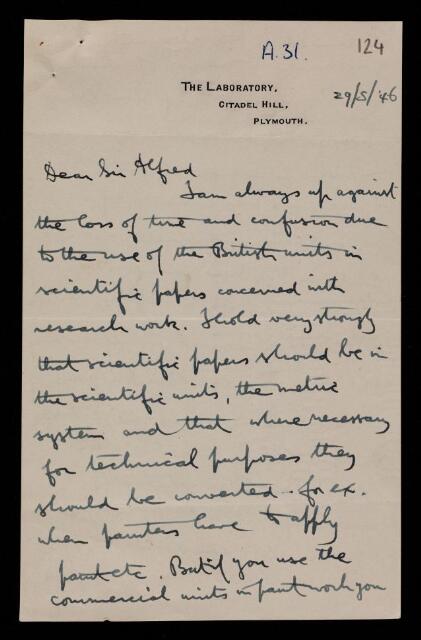 A.31.
124
THE LABORATORY,
CITADEL HILL,
PLYMOUTH.
29/5/46
Dear Sir Alfred
I am always up against
the loss of time and confusion due
to the use of the British units in
scientific papers concerned with
research work. I hold very strongly
that scientific papers should be in
the scientific units, the metric
system and that where necessary
for technical purposes they
should be converted - for ex.
when painters have to apply
paint etc. But if you use the
commercial units in paint work you